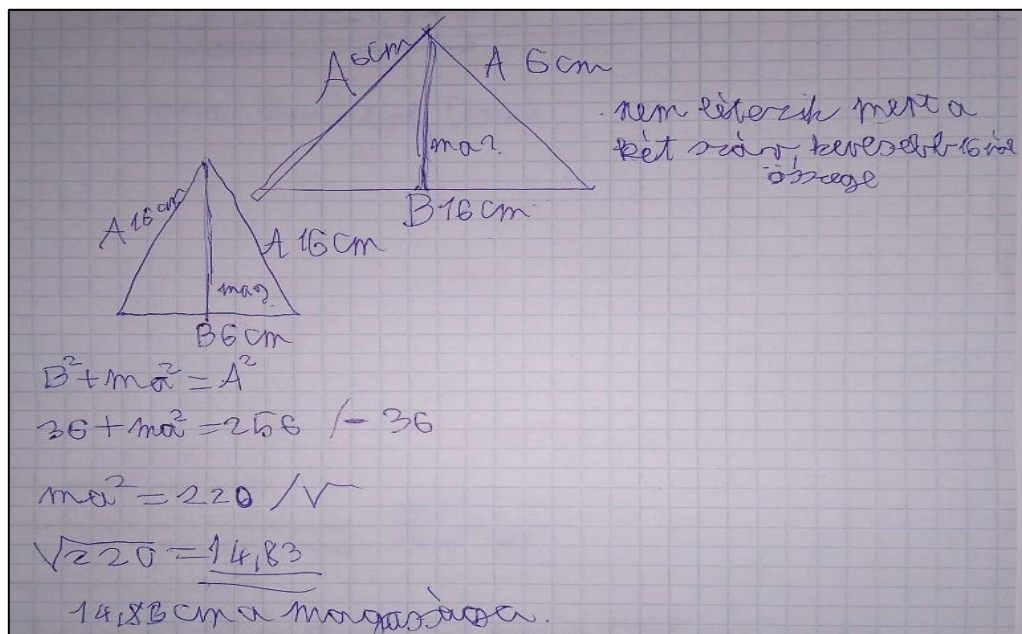 A 6cm
A 6cm
ma?
B 16cm
nem létezik mert a
két szár, kevesebb 16 nál
összege
A 16cm
A 16cm
ma?
B 6cm
B²+ma²=A²
36+ma²=256 /-36
ma²=220 /√
√220=14,83
14,83cm a magassága.